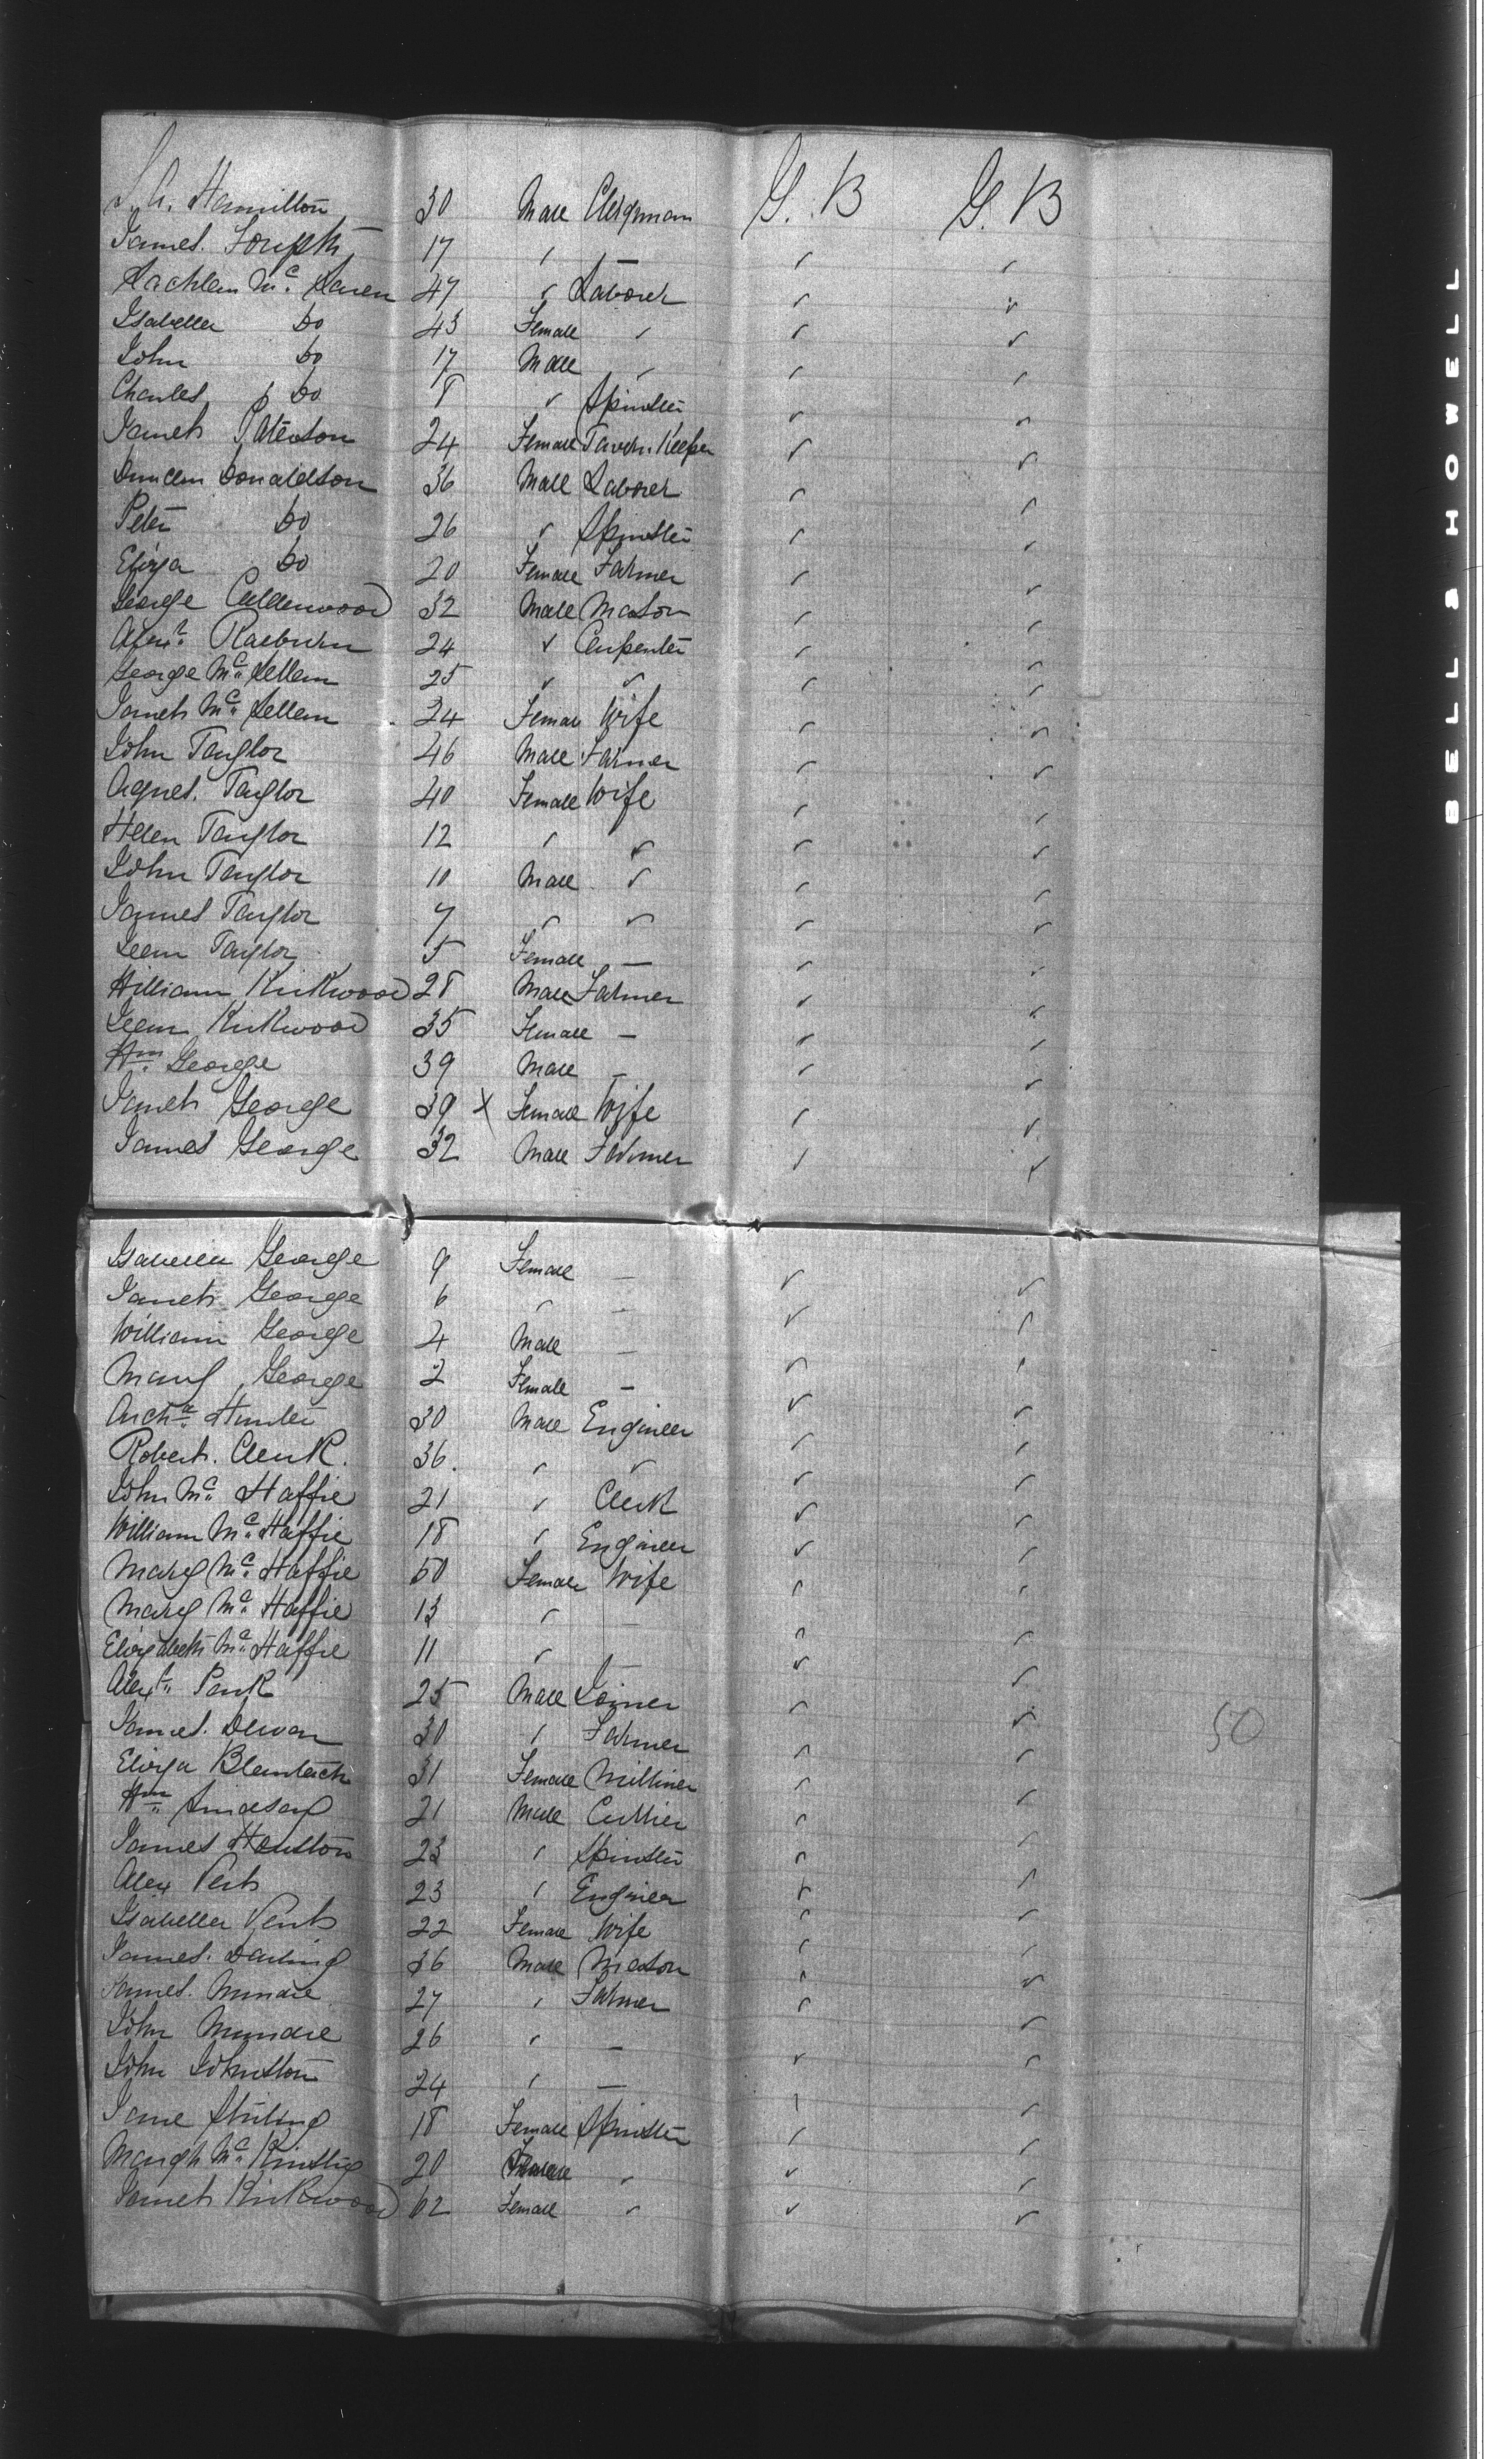 Hamilton 30 Male Clergyman G. B G. B
James. 17 " —
Lachlan Mc Laren 47 " Laborer
Isabella Do 43 Female "
John Do 17 Male "
Charles Do 8 " Spinster
Janet Paterson 24 Female Tavern Keeper
Duncan Donaldson 36 Male Laborer
Peter Do 26 " Spinster
Eliza Do 20 Female Farmer
George Calderwood 32 Male Mason
Alexr. Raeburn 24 " Carpenter
George Mc Lellan 25 " "
Janet Mc Lellan 24 Female Wife
John Taylor 46 Male Farmer
Agnes. Taylor 40 Female Wife
Helen Taylor 12 " "
John Taylor 10 Male "
James Taylor 7 " "
Jean Taylor 5 Female —
William Kirkwood 28 Male Farmer
Jean Kirkwood 35 Female —
Wm. George 39 Male —
Janet George 39 x Female Wife
James George 32 Male Farmer
Isabella George 9 Female —
Janet George 6 " —
William George 4 Male —
Mary George 2 Female —
Archd. Hunter 30 Male Engineer
Robert. Clark. 36. " "
John Mc Haffie 21 " Clerk
William Mc Haffie 18 " Engineer
Mary Mc Haffie 50 Female Wife
Mary Mc Haffie 13 " —
Elizabeth Mc Haffie 11 "
Alexr. Park 25 Male Joiner
James. 30 " Farmer 50
Eliza 31 Female Milliner
Wm. Lindsay 21 Male
James Houston 23 " Spinster
Alex 23 " Engineer
Isabella 22 Female Wife
James. Darling 36 Male Mason
James. Mundie 27 " Farmer
John Mundie 26 " —
John Johnston 24 " —
Jane Stirling 18 Female Spinster
Margt. Mc 20 "
Janet Kirkwood 62 Female "
BELL & HOWELL